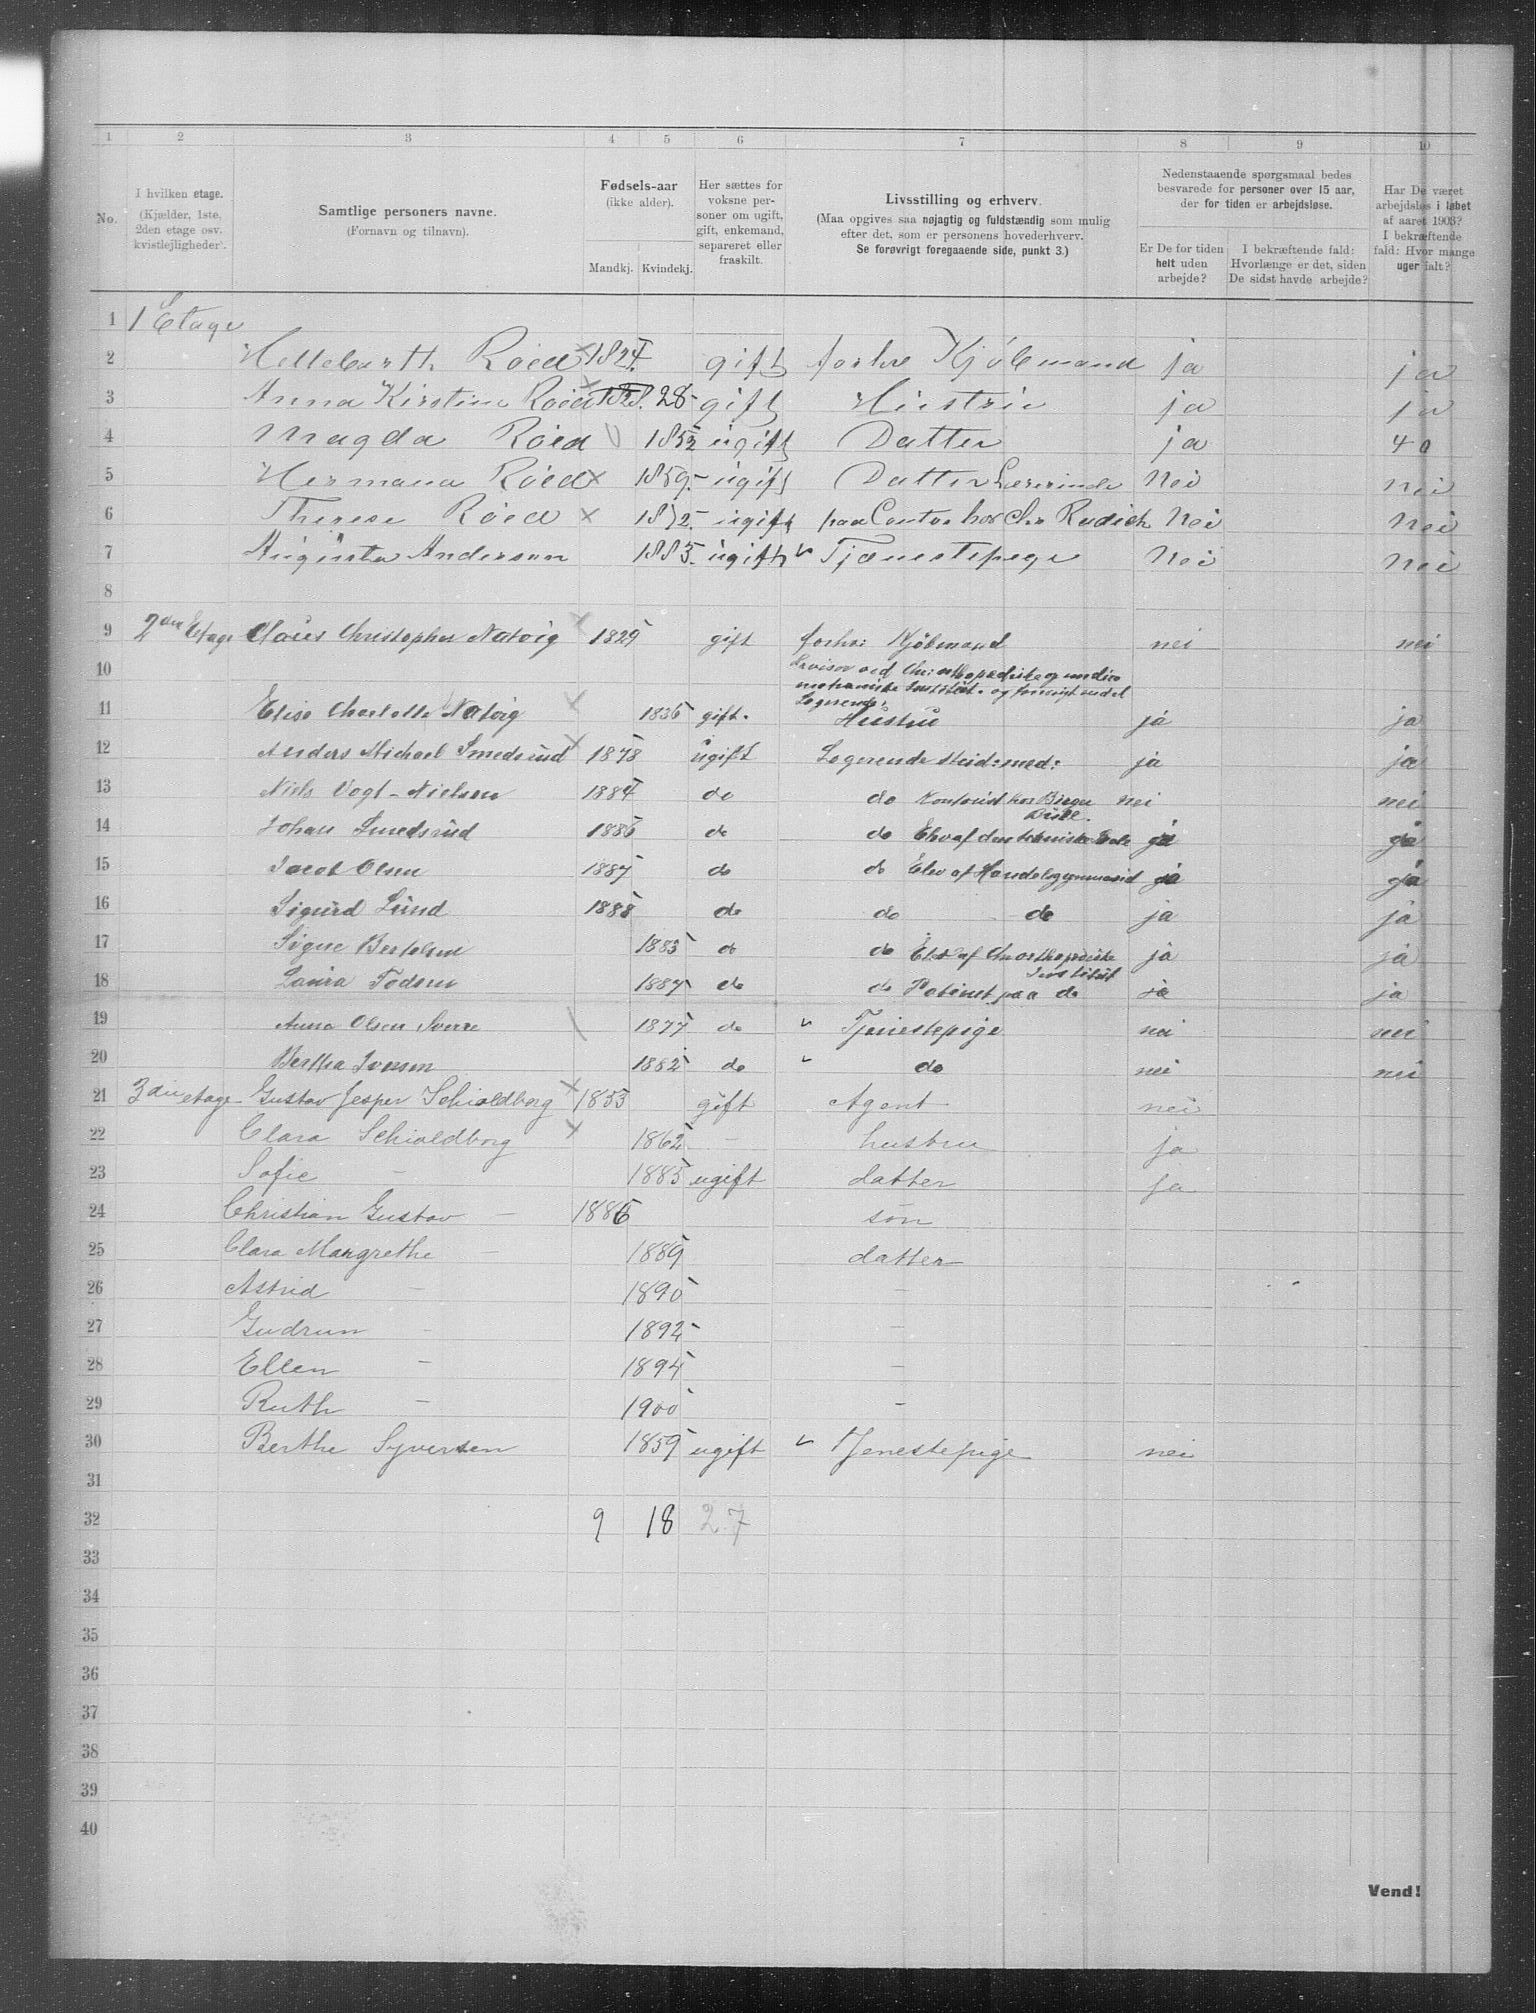 1 2 3 4 5 6 7 8 9 10
No.
I hvilken etage.
(Kjælder, 1ste,
2den etage osv.
kvistlejligheder).
Samtlige personers navne.
(Fornavn og tilnavn).
Fødsels-aar
(ikke alder).
Mandkj. Kvindekj.
Her sættes for
voksne per-
soner om ugift,
gift, enkemand,
separeret eller
fraskilt.
Livsstilling og erhverv.
(Maa opgives saa nøjagtig og fuldstændig som mulig
efter det, som er personens hovederhverv.
Se forøvrigt foregaaende side, punkt 3.)
Nedenstaaende spørgsmaal bedes
besvarede for personer over 15 aar,
der for tiden er arbejdsløse.
Er De for tiden
helt uden
arbejde?
I bekræftende fald:
Hvorlænge er det, siden
De sidst havde arbejde?
Har De været
arbejdsløs i løbet
af aaret 1903?
I bekræftende
fald: Hvor mange
uger ialt?
1 1 Etage
2 Hellebarth Röed × 1824 gift forhv Kjöbmand ja ja
3 Anna Kirstine Röed × 28 gift Hustrue ja ja
4 Magda Röed 1852 ugift Datter ja 40
5 Hermana Röed × 1859 ugift Datter Lærerinde Nei nei
6 Therese Röed × 1872 ugift paa Contor hos Chr Rudich Nei nei
7 Augusta Andersen 1883 ugift Tjænestepige Nei nei
8
9 2den Etage Claus Christopher Natvig × 1829 gift forhv: Kjöbmand nei nei
10 Revisor ved Chr: orthopædiske og medico
mekaniske Institut og forsvigt ved
Logerende:
11 Elise Charlotte Natvig × 1836 gift. Hustru ja ja
12 Anders Michael Smedsrud × 1878 ugift Logerende Stud: med: ja ja
13 Niels Vogt-Nielsen 1884 do do Kontorist hos Birger nei nei
14 Johan Smedsrud 1886 do do Elev af den tekniske Skole ja ja
15 Jacob Olsen 1887 do do Elev af Handelsgymnasid ja ja
16 Sigurd Lund 1888 do do do ja ja
17 Signe Bertelsen 1883 do do Elev af Chr orthopædiske
Institut ja ja
18 Laura Todsen 1887 do do Patient paa do ja ja
19 Anna Olsen Sverre 1877 do Tjenestepige nei nei
20 Bertha Iversen 1882 do do nei nei
21 3die etage Gustav Jesper Schioldborg × 1853 gift Agent nei
22 Clara Schioldborg × 1862 – hustru ja
23 Sofie – 1885 ugift datter ja
24 Christian Gustav – 1886 søn
25 Clara Margrethe – 1889 datter
26 Astrid – 1890 –
27 Gudrun – 1892 –
28 Ellen – 1894 –
29 Ruth – 1900 –
30 Berthe Syversen 1859 ugift tjenestepige nei
31
32 9 18 27
33
34
35
36
37
38
39
40
Vend!